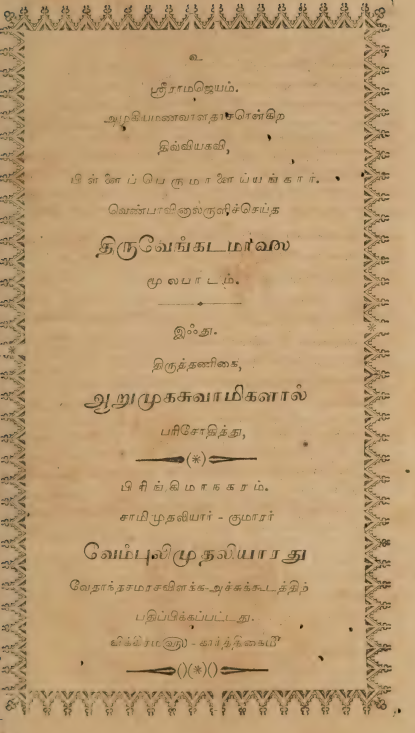 உ
ஸ்ரீராமஜெயம்.
அழகியமணவாளதாசரென்கிற
திவ்வியகவி,
பிள்ளைப்பெருமாளையங்கார்.
வெண்பாவினாலருளிச்செய்த
திருவேங்கடமாலை
மூலபாடம்.
இஃது.
திருத்தணிகை,
ஆறுமுகசுவாமிகளால்
பரிசோதித்து,
(*)
பிரிங்கிமாநகரம்.
சாமிமுதலியார் - குமாரர்
வேம்புலிமுதலியாரது
வேதாந்தசமரசவிளக்க-அச்சுக்கூடத்திற்
பதிப்பிக்கப்பட்டது.
விக்கிரம௵ - கார்த்திகை௴
()(*)()